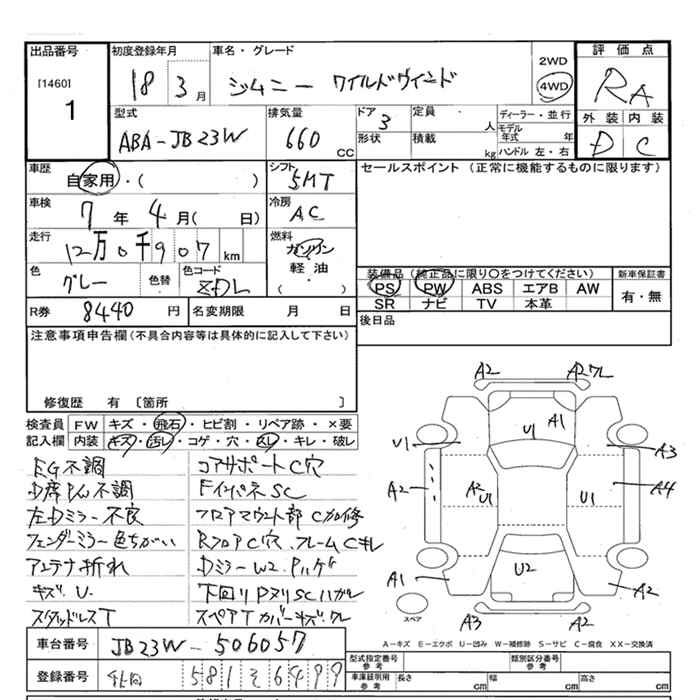 出品番号 初度登録年月 車名・グレード 2WD 評価点
[1460] 18 3月 ジムニー ワイルドウインド 4WD RA
1
型式 排気量 ドア 定員 ディーラー・並行 外装 内装
ABA-JB23W 660CC 3 人 モデル年式 年 D C
形状 積載 kg ハンドル 左・右
車歴 シフト セールスポイント (正常に機能するものに限ります)
自家用・( ) 5MT
車検 冷房
7年4月( 日) AC
走行 燃料
12万0千907km ガソリン
軽油
( )
色 色替 色コード 装備品 (純正品に限り○をつけてください) 新車保証書
グレー ZDL PS PW ABS エアB AW 有・無
SR ナビ TV 本革
R券 8440円 名変期限 月 日 後日品
注意事項申告欄(不具合内容等は具体的に記入して下さい)
修復歴 有 [箇所 ]
検査員 FW キズ・飛石・ヒビ割・リペア跡・×要
記入欄 内装 キズ・汚れ・コゲ・穴・スレ・キレ・破レ
EG不調 コアサポートC穴
D席P/W不調 FインパネSC
左Dミラー不良 フロアマウント部C加修
フェンダーミラー色ちがい RフロアC穴.フレームCキレ
アンテナ折れ DミラーW2.Pハゲ
キズ.U. 下回りPヌリSCハガレ
スタッドレスT スペアTカバーキズ.ワレ
A2 A2ワレ
A1
U1
U1 A3
A2 A2 U1 U1 A4
U2
A1 A2
スペア
A3 A2
A-キズ E-エクボ U-凹み W-補修跡 S-サビ C-腐食 XX-交換済
車台番号 JB23W-506057
型式指定番号 参考 類別区分番号 参考
登録番号 581 そ 6499
車庫証明用 参考 長さ cm 幅 cm 高さ cm